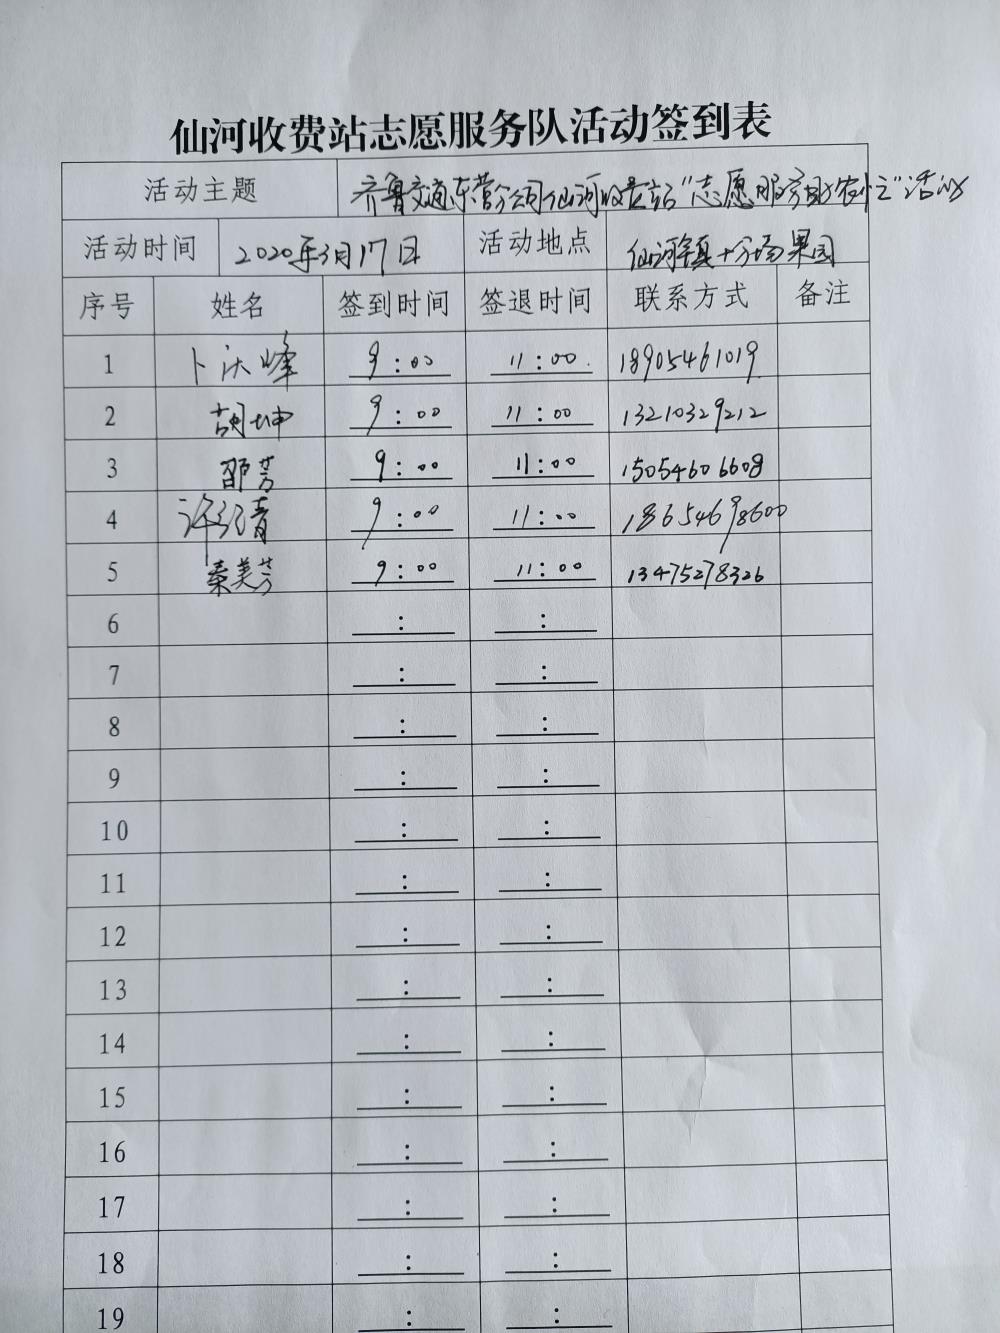 仙河收费站志愿服务队活动签到表
活动主题 齐鲁交通东营分公司仙河收费站“志愿服务助农”活动
活动时间 2020年3月17日 活动地点 仙河镇十分场果园
序号 姓名 签到时间 签退时间 联系方式 备注
1 卜庆峰 9:00 11:00 18905461019
2 胡坤 9:00 11:00 13210329212
3 邵芳 9:00 11:00 15054606608
4 许红青 9:00 11:00 18654698600
5 秦美芳 9:00 11:00 13475278326
6 : :
7 : :
8 : :
9 : :
10 : :
11 : :
12 : :
13 : :
14 : :
15 : :
16 : :
17 : :
18 : :
19 : :